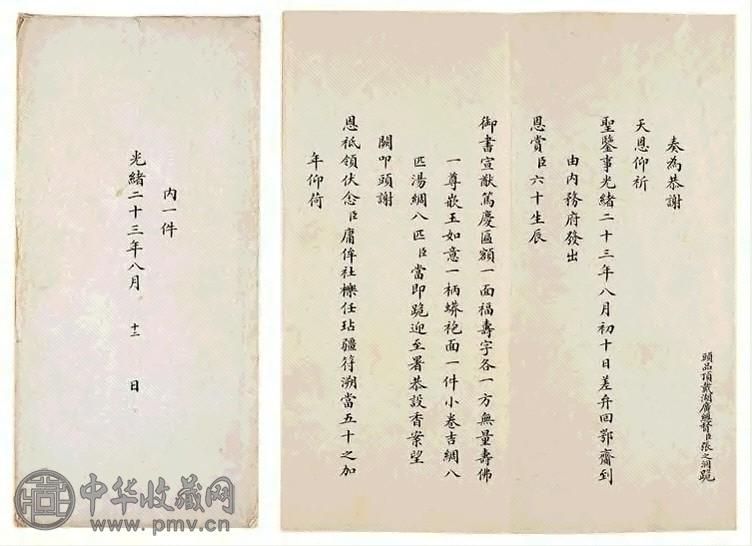 頭品頂戴湖廣總督臣張之洞跪
奏為恭謝
天恩仰祈
聖鑒事光緒二十三年八月初十日差弁回鄂齎到
由內務府發出
恩賞臣六十生辰
御書宣猷篤慶匾額一面福壽字各一方無量壽佛
一尊嵌玉如意一柄蟒袍面一件小卷吉綢八
匹湯綢八匹臣當即跪迎至署恭設香案望
闕叩頭謝
恩祗領伏念臣庸侔社櫟任玷疆符溯當五十之加
年仰荷
內一件
光緒二十三年八月 十二 日
中华收藏网
www.pmv.cn